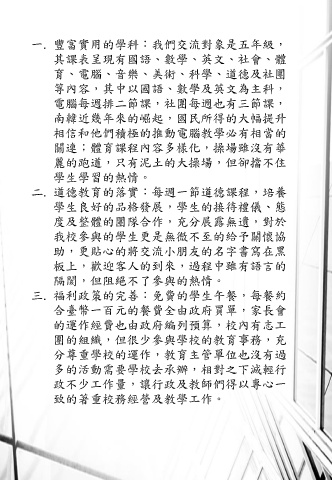 一. 豐富實用的學科：我們交流對象是五年級，
其課表呈現有國語、數學、英文、社會、體
育、電腦、音樂、美術、科學、道德及社團
等內容，其中以國語、數學及英文為主科，
電腦每週排二節課，社團每週也有三節課，
南韓近幾年來的崛起，國民所得的大幅提升
相信和他們積極的推動電腦教學必有相當的
關連；體育課程內容多樣化，操場雖沒有華
麗的跑道，只有泥土的大操場，但卻擋不住
學生學習的熱情。
二. 道德教育的落實：每週一節道德課程，培養
學生良好的品格發展，學生的接待禮儀、態
度及整體的團隊合作，充分展露無遺，對於
我校參與的學生更是無微不至的給予關懷協
助，更貼心的將交流小朋友的名字書寫在黑
板上，歡迎客人的到來，過程中雖有語言的
隔閡，但阻絕不了參與的熱情。
三. 福利政策的完善：免費的學生午餐，每餐約
合臺幣一百元的餐費全由政府買單，家長會
的運作經費也由政府編列預算，校內有志工
團的組織，但很少參與學校的教育事務，充
分尊重學校的運作，教育主管單位也沒有過
多的活動需要學校去承辦，相對之下減輕行
政不少工作量，讓行政及教師們得以專心一
致的著重校務經營及教學工作。